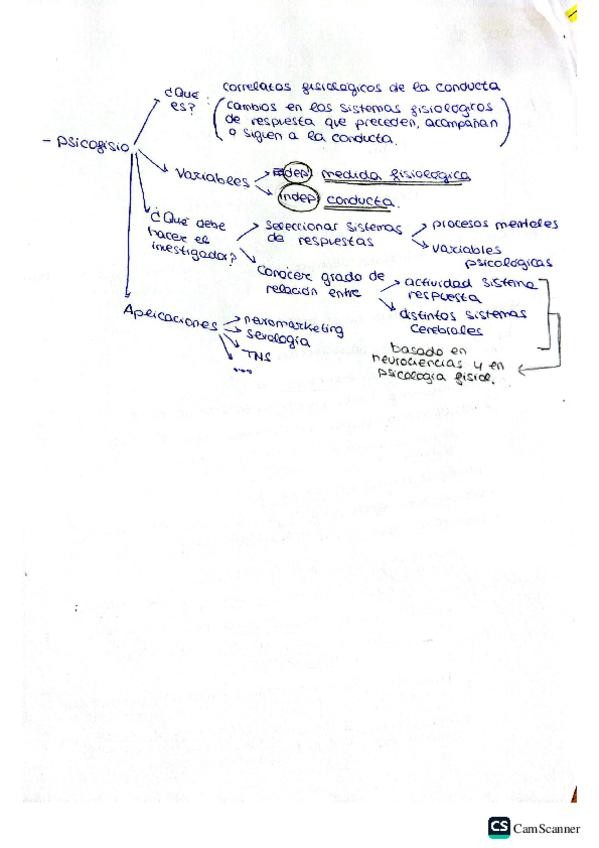 ¿Qué es? : correlatos fisiológicos de la conducta
(cambios en los sistemas fisiológicos
de respuesta que preceden, acompañan
o siguen a la conducta.)
- Psicofisio
Variables
dep medida fisiológica
indep conducta.
¿Qué debe
hacer el
investigador?
Seleccionar sistemas
de respuestas
procesos mentales
variables
psicológicas
Conocer grado de
relación entre
actividad sistema
respuesta
distintos sistemas
cerebrales
basado en
neurociencias y en
psicología fisiol.
Aplicaciones
neuromarketing
Sexología
TNS
....
CS CamScanner